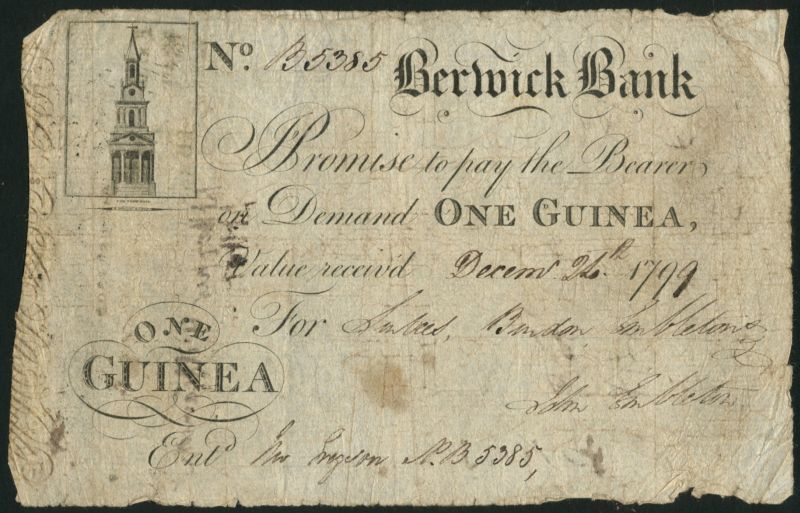 No. B5385 Berwick Bank
I Promise to pay the Bearer
on Demand ONE GUINEA,
Value receiv'd Decemr 24th 1799
For Surtees, Burdon Embletons
ONE
GUINEA
John Embleton
Entd No. B5385,